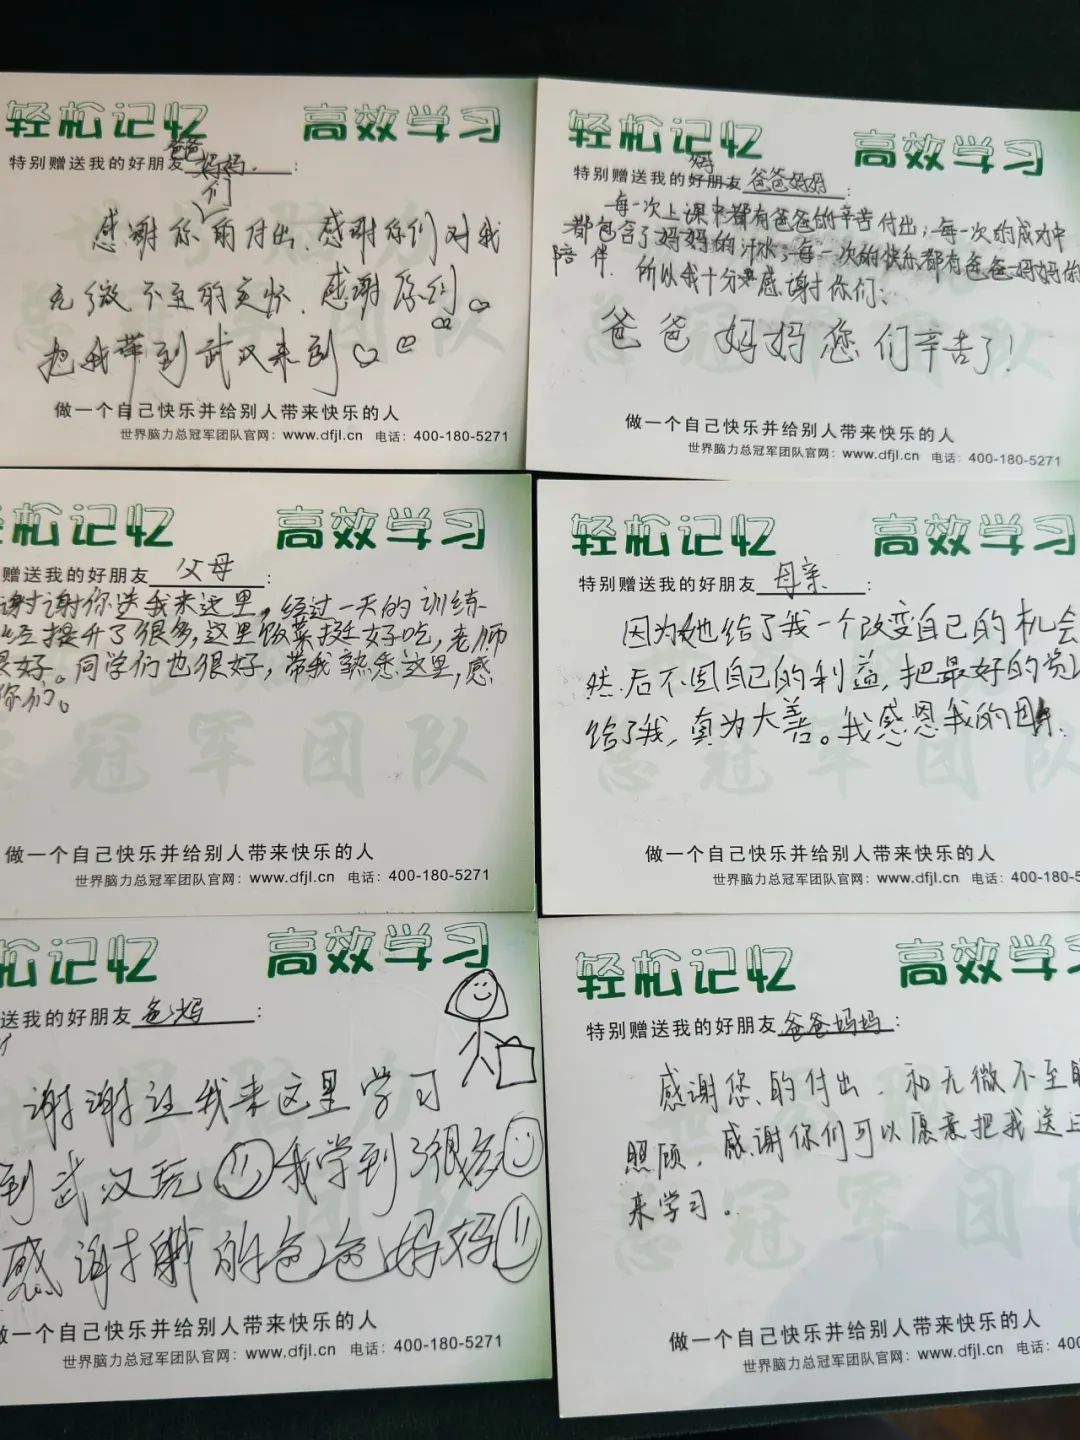 轻松记忆 高效学习
特别赠送我的好朋友 爸爸妈妈:
感谢你们的付出.感谢你们对我
无微不至的关怀.感谢你们
把我带到武汉来到
做一个自己快乐并给别人带来快乐的人
世界脑力总冠军团队官网:www.dfjl.cn 电话:400-180-5271
轻松记忆 高效学习
特别赠送我的好朋友 爸爸妈妈:
每一次上课中都有爸爸的辛苦付出;每一次的成功中
都包含了妈妈的汗水;每一次的快乐都有爸爸妈妈的
陪伴.所以我十分感谢你们:
爸爸妈妈您们辛苦了!
做一个自己快乐并给别人带来快乐的人
世界脑力总冠军团队官网:www.dfjl.cn 电话:400-180-5271
松记忆 高效学习
赠送我的好朋友 父母:
谢谢你送我来这里,经过一天的训练
经提升了很多,这里饭菜挺好吃,老师
很好。同学们也很好,带我熟悉这里,感
你们。
冠军团队
做一个自己快乐并给别人带来快乐的人
世界脑力总冠军团队官网:www.dfjl.cn 电话:400-180-5271
轻松记忆 高效学习
特别赠送我的好朋友 母亲:
因为她给了我一个改变自己的机会
然后不因自己的利益,把最好的资
给了我,真为大善。我感恩我的
总冠军团队
做一个自己快乐并给别人带来快乐的人
世界脑力总冠军团队官网:www.dfjl.cn 电话:400-180-5
松记忆 高效学习
送我的好朋友 爸妈:
谢谢让我来这里学习
到武汉玩 我学到了很多
感谢我的爸爸妈妈
做一个自己快乐并给别人带来快乐的人
世界脑力总冠军团队官网:www.dfjl.cn 电话:400-180-5271
轻松记忆 高效学
特别赠送我的好朋友 爸爸妈妈:
感谢您的付出.和无微不至
照顾.感谢你们可以愿意把我送
来学习。
做一个自己快乐并给别人带来快乐的人
世界脑力总冠军团队官网:www.dfjl.cn 电话:400